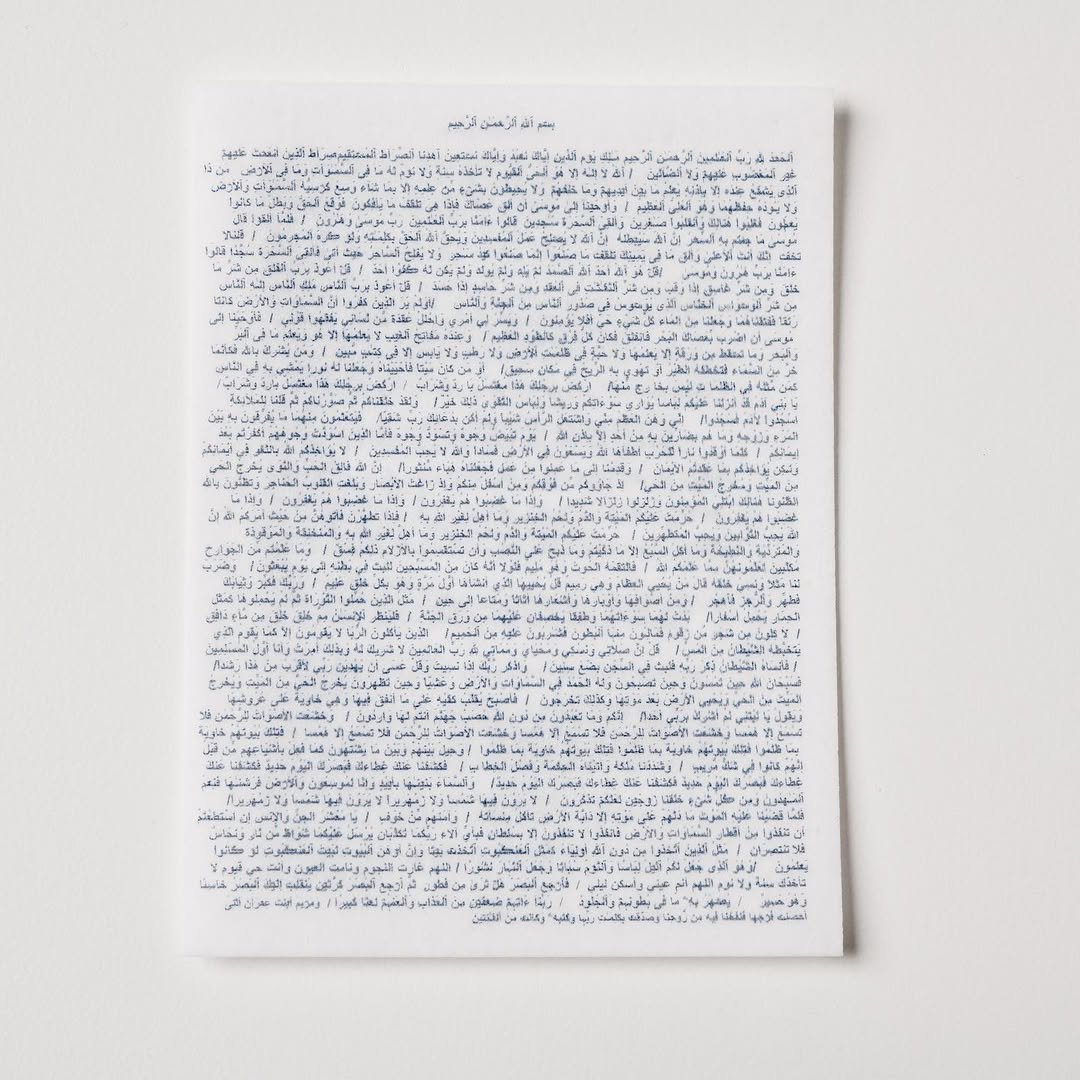 بسم ٱلله ٱلرَّحمـٰن ٱلرَّحيم
ٱلحَمدُ للهِ رَبِّ ٱلعَـٰلمينَ ٱلرَّحمـن ٱلرَّحيم مَـٰلِك يَوم ٱلدّين إيَّاكَ نَعبُدُ وَإيَّاكَ نَستَعينُ ٱهدنا ٱلصِّرَاطَ ٱلمُستَقيمَ صِرَاطَ ٱلَّذينَ أنعَمتَ عَلَيهِمْ
غَيرِ ٱلمَغضُوبِ عَلَيهِمْ وَلَا ٱلضَّالّينَ / ٱللهُ لَا إلَـٰهَ إلَّا هُوَ ٱلحَيُّ ٱلقَيُّومُ لَا تَأخُذُهُ سِنَةٌ وَلَا نَومٌ لَهُ مَا فِى ٱلسَّمَـٰوَاتِ وَمَا فِى ٱلأرضِ مَن ذَا
ٱلَّذِى يَشفَعُ عِندَهُ إلَّا بِإذنِهِ يَعلَمُ مَا بَينَ أيدِيهِمْ وَمَا خَلفَهُمْ وَلَا يُحِيطُونَ بِشَىْءٍ مِّن عِلمِهِ إلَّا بِمَا شَاءَ وَسِعَ كُرسِيُّهُ ٱلسَّمَـٰوَاتِ وَٱلأرضَ
وَلَا يَـُٔودُهُ حِفظُهُمَا وَهُوَ ٱلعَلِىُّ ٱلعَظِيمُ / وَأوحَينَا إلَى مُوسَى أن ألقِ عَصَاكَ فَإذَا هِىَ تَلقَفُ مَا يَأفِكُونَ فَوَقَعَ ٱلحَقُّ وَبَطَلَ مَا كَانُوا
يَعمَلُونَ فَغُلِبُوا هُنَالِكَ وَٱنقَلَبُوا صَـٰغِرِينَ وَأُلقِىَ ٱلسَّحَرَةُ سَـٰجِدِينَ قَالُوا ءَامَنَّا بِرَبِّ ٱلعَـٰلَمِينَ رَبِّ مُوسَىٰ وَهَـٰرُونَ / فَلَمَّا ألقَوا قَالَ
مُوسَىٰ مَا جِئتُم بِهِ ٱلسِّحرُ إنَّ ٱللهَ سَيُبطِلُهُ إنَّ ٱللهَ لَا يُصلِحُ عَمَلَ ٱلمُفسِدِينَ وَيُحِقُّ ٱللهُ ٱلحَقَّ بِكَلِمَـٰتِهِ وَلَو كَرِهَ ٱلمُجرِمُونَ / قُلنَا لَا
تَخَف إنَّكَ أنتَ ٱلأعلَىٰ وَألقِ مَا فِى يَمِينِكَ تَلقَف مَا صَنَعُوا إنَّمَا صَنَعُوا كَيدُ سَـٰحِرٍ وَلَا يُفلِحُ ٱلسَّاحِرُ حَيثُ أتَىٰ فَألقِىَ ٱلسَّحَرَةُ سُجَّدًا قَالُوا
ءَامَنَّا بِرَبِّ هَـٰرُونَ وَمُوسَىٰ / قُل هُوَ ٱللهُ أحَدٌ ٱللهُ ٱلصَّمَدُ لَمْ يَلِد وَلَمْ يُولَد وَلَمْ يَكُن لَهُ كُفُوًا أحَدٌ / قُل أعُوذُ بِرَبِّ ٱلفَلَقِ مِن شَرِّ مَا
خَلَقَ وَمِن شَرِّ غَاسِقٍ إذَا وَقَبَ وَمِن شَرِّ ٱلنَّفَّـٰثَـٰتِ فِى ٱلعُقَدِ وَمِن شَرِّ حَاسِدٍ إذَا حَسَدَ / قُل أعُوذُ بِرَبِّ ٱلنَّاسِ مَلِكِ ٱلنَّاسِ إلَـٰهِ ٱلنَّاسِ
مِن شَرِّ ٱلوَسوَاسِ ٱلخَنَّاسِ ٱلَّذِى يُوَسوِسُ فِى صُدُورِ ٱلنَّاسِ مِنَ ٱلجِنَّةِ وَٱلنَّاسِ / أوَلَمْ يَرَ الَّذِينَ كَفَرُوا أنَّ السَّمَاوَاتِ وَالأرضَ كَانَتَا
رَتقًا فَفَتَقنَاهُمَا وَجَعَلنَا مِنَ المَاءِ كُلَّ شَيْءٍ حَيٍّ أفَلَا يُؤمِنُونَ / وَيَسِّر لِي أمرِي وَاحلُل عُقدَةً مِّن لِّسَانِي يَفقَهُوا قَولِي / فَأوحَينَا إلَى
مُوسَى أنِ اضرِب بِعَصَاكَ البَحرَ فَانفَلَقَ فَكَانَ كُلُّ فِرقٍ كَالطَّودِ العَظِيمِ / وَعِندَهُ مَفَاتِحُ الغَيبِ لَا يَعلَمُهَا إلَّا هُوَ وَيَعلَمُ مَا فِي البَرِّ
وَالبَحرِ وَمَا تَسقُطُ مِن وَرَقَةٍ إلَّا يَعلَمُهَا وَلَا حَبَّةٍ فِي ظُلُمَـٰتِ الأرضِ وَلَا رَطبٍ وَلَا يَابِسٍ إلَّا فِى كِتَـٰبٍ مُبِينٍ / وَمَن يُشرِك بِاللهِ فَكَأنَّمَا
خَرَّ مِنَ السَّمَاءِ فَتَخطَفُهُ الطَّيرُ أو تَهوِي بِهِ الرِّيحُ فِي مَكَانٍ سَحِيقٍ/ أوَ مَن كَانَ مَيتًا فَأحيَينَاهُ وَجَعَلنَا لَهُ نُورًا يَمشِي بِهِ فِي النَّاسِ
كَمَن مَّثَلُهُ فِي الظُّلُمَا تِ لَيسَ بِخَا رِجٍ مِّنهَا/ اركُض بِرِجلِكَ هَذَا مُغتَسَلٌ بَا رِدٌ وَشَرَابٌ / اركُض بِرِجلِكَ هَذَا مُغتَسَلٌ بَارِدٌ وَشَرَابٌ/
يَا بَنِي آدَمَ قَد أنزَلنَا عَلَيكُم لِبَاسًا يُوَارِي سَوءَاتِكُم وَرِيشًا وَلِبَاسُ التَّقوَى ذَلِكَ خَيرٌ/ وَلَقَد خَلَقنَاكُم ثُمَّ صَوَّرنَاكُم ثُمَّ قُلنَا لِلمَلَائِكَةِ
اسجُدُوا لِآدَمَ فَسَجَدُوا/ إنِّي وَهَنَ العَظمُ مِنِّي وَاشتَعَلَ الرَّأسُ شَيبًا وَلَم أكُن بِدُعَائِكَ رَبِّ شَقِيًّا/ فَيَتَعَلَّمُونَ مِنهُمَا مَا يُفَرِّقُونَ بِهِ بَينَ
المَرءِ وَزَوجِهِ وَمَا هُم بِضَارِّينَ بِهِ مِن أحَدٍ إلَّا بِإذنِ اللهِ / يَومَ تَبيَضُّ وُجُوهٌ وَتَسوَدُّ وُجُوهٌ فَأمَّا الَّذِينَ اسوَدَّت وُجُوهُهُم أكَفَرتُم بَعدَ
إيمَانِكُم / كُلَّمَا أوقَدُوا نَارًا لِّلحَربِ أطفَأهَا اللهُ وَيَسعَونَ فِي الأرضِ فَسَادًا وَاللهُ لَا يُحِبُّ المُفسِدِينَ / لَا يُؤَاخِذُكُمُ اللهُ بِاللَّغوِ فِي أيمَانِكُم
وَلَـٰكِن يُؤَاخِذُكُم بِمَا عَقَّدتُمُ الأيمَانَ / وَقَدِمنَا إلَى مَا عَمِلُوا مِن عَمَلٍ فَجَعَلنَاهُ هَبَاءً مَّنثُورًا/ إنَّ اللهَ فَالِقُ الحَبِّ وَالنَّوَى يُخرِجُ الحَيَّ
مِنَ المَيِّتِ وَمُخرِجُ المَيِّتِ مِنَ الحَيِّ/ إذ جَاؤُوكُم مِّن فَوقِكُم وَمِن أسفَلَ مِنكُمْ وَإذ زَاغَتِ الأبصَارُ وَبَلَغَتِ القُلُوبُ الحَنَاجِرَ وَتَظُنُّونَ بِاللهِ
الظُّنُونَا هُنَالِكَ ابتُلِيَ المُؤمِنُونَ وَزُلزِلُوا زِلزَالًا شَدِيدًا / وَإذَا مَا غَضِبُوا هُم يَغفِرُونَ / وَإذَا مَا غَضِبُوا هُم يَغفِرُونَ / وَإذَا مَا
غَضِبُوا هُم يَغفِرُونَ / حُرِّمَت عَلَيكُمُ المَيتَةُ وَالدَّمُ وَلَحمُ الخِنزِيرِ وَمَا أهِلَّ لِغَيرِ اللهِ بِهِ / فَإذَا تَطَهَّرنَ فَأتُوهُنَّ مِن حَيثُ أمَرَكُمُ اللهُ إنَّ
اللهَ يُحِبُّ التَّوَّابِينَ وَيُحِبُّ المُتَطَهِّرِينَ / حُرِّمَت عَلَيكُمُ المَيتَةُ وَالدَّمُ وَلَحمُ الخِنزِيرِ وَمَا أهِلَّ لِغَيرِ اللهِ بِهِ وَالمُنخَنِقَةُ وَالمَوقُوذَةُ
وَالمُتَرَدِّيَةُ وَالنَّطِيحَةُ وَمَا أكَلَ السَّبُعُ إلَّا مَا ذَكَّيتُم وَمَا ذُبِحَ عَلَى النُّصُبِ وَأن تَستَقسِمُوا بِالأزلَامِ ذَلِكُم فِسقٌ / وَمَا عَلَّمتُم مِّنَ الجَوَارِحِ
مُكَلِّبِينَ تُعَلِّمُونَهُنَّ مِمَّا عَلَّمَكُمُ اللهُ / فَالتَقَمَهُ الحُوتُ وَهُوَ مُلِيمٌ فَلَولَا أنَّهُ كَانَ مِنَ المُسَبِّحِينَ لَلَبِثَ فِي بَطنِهِ إلَى يَومِ يُبعَثُونَ/ وَضَرَبَ
لَنَا مَثَلًا وَنَسِيَ خَلقَهُ قَالَ مَن يُحيِي العِظَامَ وَهِيَ رَمِيمٌ قُل يُحيِيهَا الَّذِي أنشَأهَا أوَّلَ مَرَّةٍ وَهُوَ بِكُلِّ خَلقٍ عَلِيمٌ / وَرَبَّكَ فَكَبِّر وَثِيَابَكَ
فَطَهِّر وَالرُّجزَ فَاهجُر / وَمِن أصوَافِهَا وَأوبَارِهَا وَأشعَارِهَا أثَاثًا وَمَتَاعًا إلَى حِينٍ / مَثَلُ الَّذِينَ حُمِّلُوا التَّورَاةَ ثُمَّ لَم يَحمِلُوهَا كَمَثَلِ
الحِمَارِ يَحمِلُ أسفَارًا/ بَدَت لَهُمَا سَوءَاتُهُمَا وَطَفِقَا يَخصِفَانِ عَلَيهِمَا مِن وَرَقِ الجَنَّةِ / فَليَنظُرِ الإنسَنُ مِمَّ خُلِقَ خُلِقَ مِن مَّاءٍ دَافِقٍ
/ لَآكِلُونَ مِن شَجَرٍ مِّن زَقُّومٍ فَمَالِئُونَ مِنهَا البُطُونَ فَشَارِبُونَ عَلَيهِ مِنَ الحَمِيمِ/ الَّذِينَ يَأكُلُونَ الرِّبَا لَا يَقُومُونَ إلَّا كَمَا يَقُومُ الَّذِي
يَتَخَبَّطُهُ الشَّيطَانُ مِنَ المَسِّ/ قُل إنَّ صَلَاتِي وَنُسُكِي وَمَحيَايَ وَمَمَاتِي للهِ رَبِّ العَالَمِينَ لَا شَرِيكَ لَهُ وَبِذَلِكَ أمِرتُ وَأنَا أوَّلُ المُسلِمِينَ
/ فَأنسَاهُ الشَّيطَانُ ذِكرَ رَبِّهِ فَلَبِثَ فِي السِّجنِ بِضعَ سِنِينَ/ وَاذكُر رَّبَّكَ إذَا نَسِيتَ وَقُل عَسَى أن يَهدِيَنِ رَبِّي لِأقرَبَ مِن هَذَا رَشَدًا/
فَسُبحَانَ اللهِ حِينَ تُمسُونَ وَحِينَ تُصبِحُونَ وَلَهُ الحَمدُ فِي السَّمَاوَاتِ وَالأرضِ وَعَشِيًّا وَحِينَ تُظهِرُونَ يُخرِجُ الحَيَّ مِنَ المَيِّتِ وَيُخرِجُ
المَيِّتَ مِنَ الحَيِّ وَيُحيِي الأرضَ بَعدَ مَوتِهَا وَكَذَلِكَ تُخرَجُونَ / فَأصبَحَ يُقَلِّبُ كَفَّيهِ عَلَى مَا أنفَقَ فِيهَا وَهِيَ خَاوِيَةٌ عَلَى عُرُوشِهَا
وَيَقُولُ يَا لَيتَنِي لَم أشرِك بِرَبِّي أحَدًا/ إنَّكُم وَمَا تَعبُدُونَ مِن دُونِ اللهِ حَصَبُ جَهَنَّمَ أنتُم لَهَا وَارِدُونَ / وَخَشَعَتِ الأصوَاتُ لِلرَّحمَنِ فَلَا
تَسمَعُ إلَّا هَمسًا وَخَشَعَتِ الأصوَاتُ لِلرَّحمَنِ فَلَا تَسمَعُ إلَّا هَمسًا وَخَشَعَتِ الأصوَاتُ لِلرَّحمَنِ فَلَا تَسمَعُ إلَّا هَمسًا / فَتِلكَ بُيُوتُهُم خَاوِيَةً
بِمَا ظَلَمُوا فَتِلكَ بُيُوتُهُم خَاوِيَةً بِمَا ظَلَمُوا فَتِلكَ بُيُوتُهُم خَاوِيَةً بِمَا ظَلَمُوا / وَحِيلَ بَينَهُم وَبَينَ مَا يَشتَهُونَ كَمَا فُعِلَ بِأشيَاعِهِم مِّن قَبلُ
إنَّهُم كَانُوا فِي شَكٍّ مُّرِيبٍ / وَشَدَدنَا مُلكَهُ وَآتَينَاهُ الحِكمَةَ وَفَصلَ الخِطَابِ / فَكَشَفنَا عَنكَ غِطَاءَكَ فَبَصَرُكَ اليَومَ حَدِيدٌ فَكَشَفنَا عَنكَ
غِطَاءَكَ فَبَصَرُكَ اليَومَ حَدِيدٌ فَكَشَفنَا عَنكَ غِطَاءَكَ فَبَصَرُكَ اليَومَ حَدِيدٌ/ وَٱلسَّمَاءَ بَنَينَـٰهَا بِأييدٍ وَإنَّا لَمُوسِعُونَ وَٱلأرضَ فَرَشنَـٰهَا فَنِعمَ
ٱلمَـٰهِدُونَ وَمِن كُلِّ شَىْءٍ خَلَقنَا زَوجَينِ لَعَلَّكُم تَذَكَّرُونَ / لَا يَرَونَ فِيهَا شَمسًا وَلَا زَمهَرِيرًا لَا يَرَونَ فِيهَا شَمسًا وَلَا زَمهَرِيرًا/
فَلَمَّا قَضَينَا عَلَيهِ المَوتَ مَا دَلَّهُم عَلَى مَوتِهِ إلَّا دَابَّةُ الأرضِ تَأكُلُ مِنسَأتَهُ / وَآمَنَهُم مِّن خَوفٍ / يَا مَعشَرَ الجِنِّ وَالإنسِ إنِ استَطَعتُم
أن تَنفُذُوا مِن أقطَارِ السَّمَاوَاتِ وَالأرضِ فَانفُذُوا لَا تَنفُذُونَ إلَّا بِسُلطَانٍ فَبِأيِّ آلَاءِ رَبِّكُمَا تُكَذِّبَانِ يُرسَلُ عَلَيكُمَا شُوَاظٌ مِّن نَّارٍ وَنُحَاسٌ
فَلَا تَنتَصِرَانِ / مَثَلُ ٱلَّذِينَ ٱتَّخَذُوا مِن دُونِ ٱللهِ أولِيَاءَ كَمَثَلِ ٱلعَنكَبُوتِ ٱتَّخَذَت بَيتًا وَإنَّ أوهَنَ ٱلبُيُوتِ لَبَيتُ ٱلعَنكَبُوتِ لَو كَانُوا
يَعلَمُونَ / وَهُوَ ٱلَّذِى جَعَلَ لَكُمُ ٱلَّيلَ لِبَاسًا وَٱلنَّومَ سُبَاتًا وَجَعَلَ ٱلنَّهَارَ نُشُورًا/ اللهم غارت النجوم ونامت العيون وأنت حي قيوم لا
تأخذك سنة ولا نوم اللهم أنم عيني وأسكن ليلي / فَٱرجِعِ ٱلبَصَرَ هَل تَرَىٰ مِن فُطُورٍ ثُمَّ ٱرجِعِ ٱلبَصَرَ كَرَّتَينِ يَنقَلِب إلَيكَ ٱلبَصَرُ خَاسِئًا
وَهُوَ حَسِيرٌ / يُصهَرُ بِهِ مَا فِى بُطُونِهِمْ وَٱلجُلُودُ / رَبَّنَا ءَاتِهِمْ ضِعفَينِ مِنَ العَذَابِ وَٱلعَنهُمْ لَعنًا كَبِيرًا / وَمَريَمَ ٱبنَتَ عِمرَانَ ٱلَّتِى
أحصَنَت فَرجَهَا فَنَفَخنَا فِيهِ مِن رُوحِنَا وَصَدَّقَت بِكَلِمَـٰتِ رَبِّهَا وَكُتُبِهِ وَكَانَت مِنَ ٱلقَـٰنِتِينَ